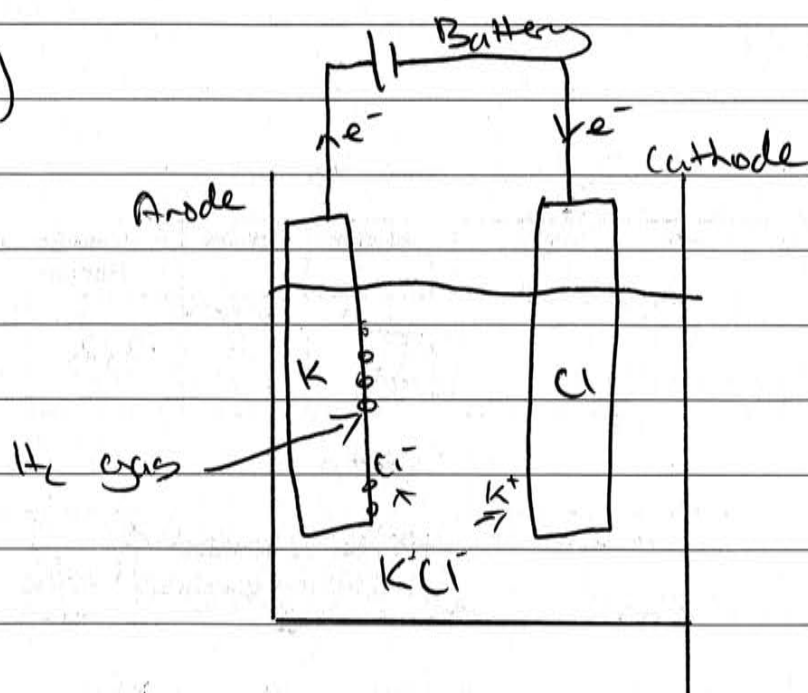 Battery
e⁻
e⁻
Cathode
Anode
K
Cl
H₂ gas
Cl⁻
K⁺
K⁺Cl⁻